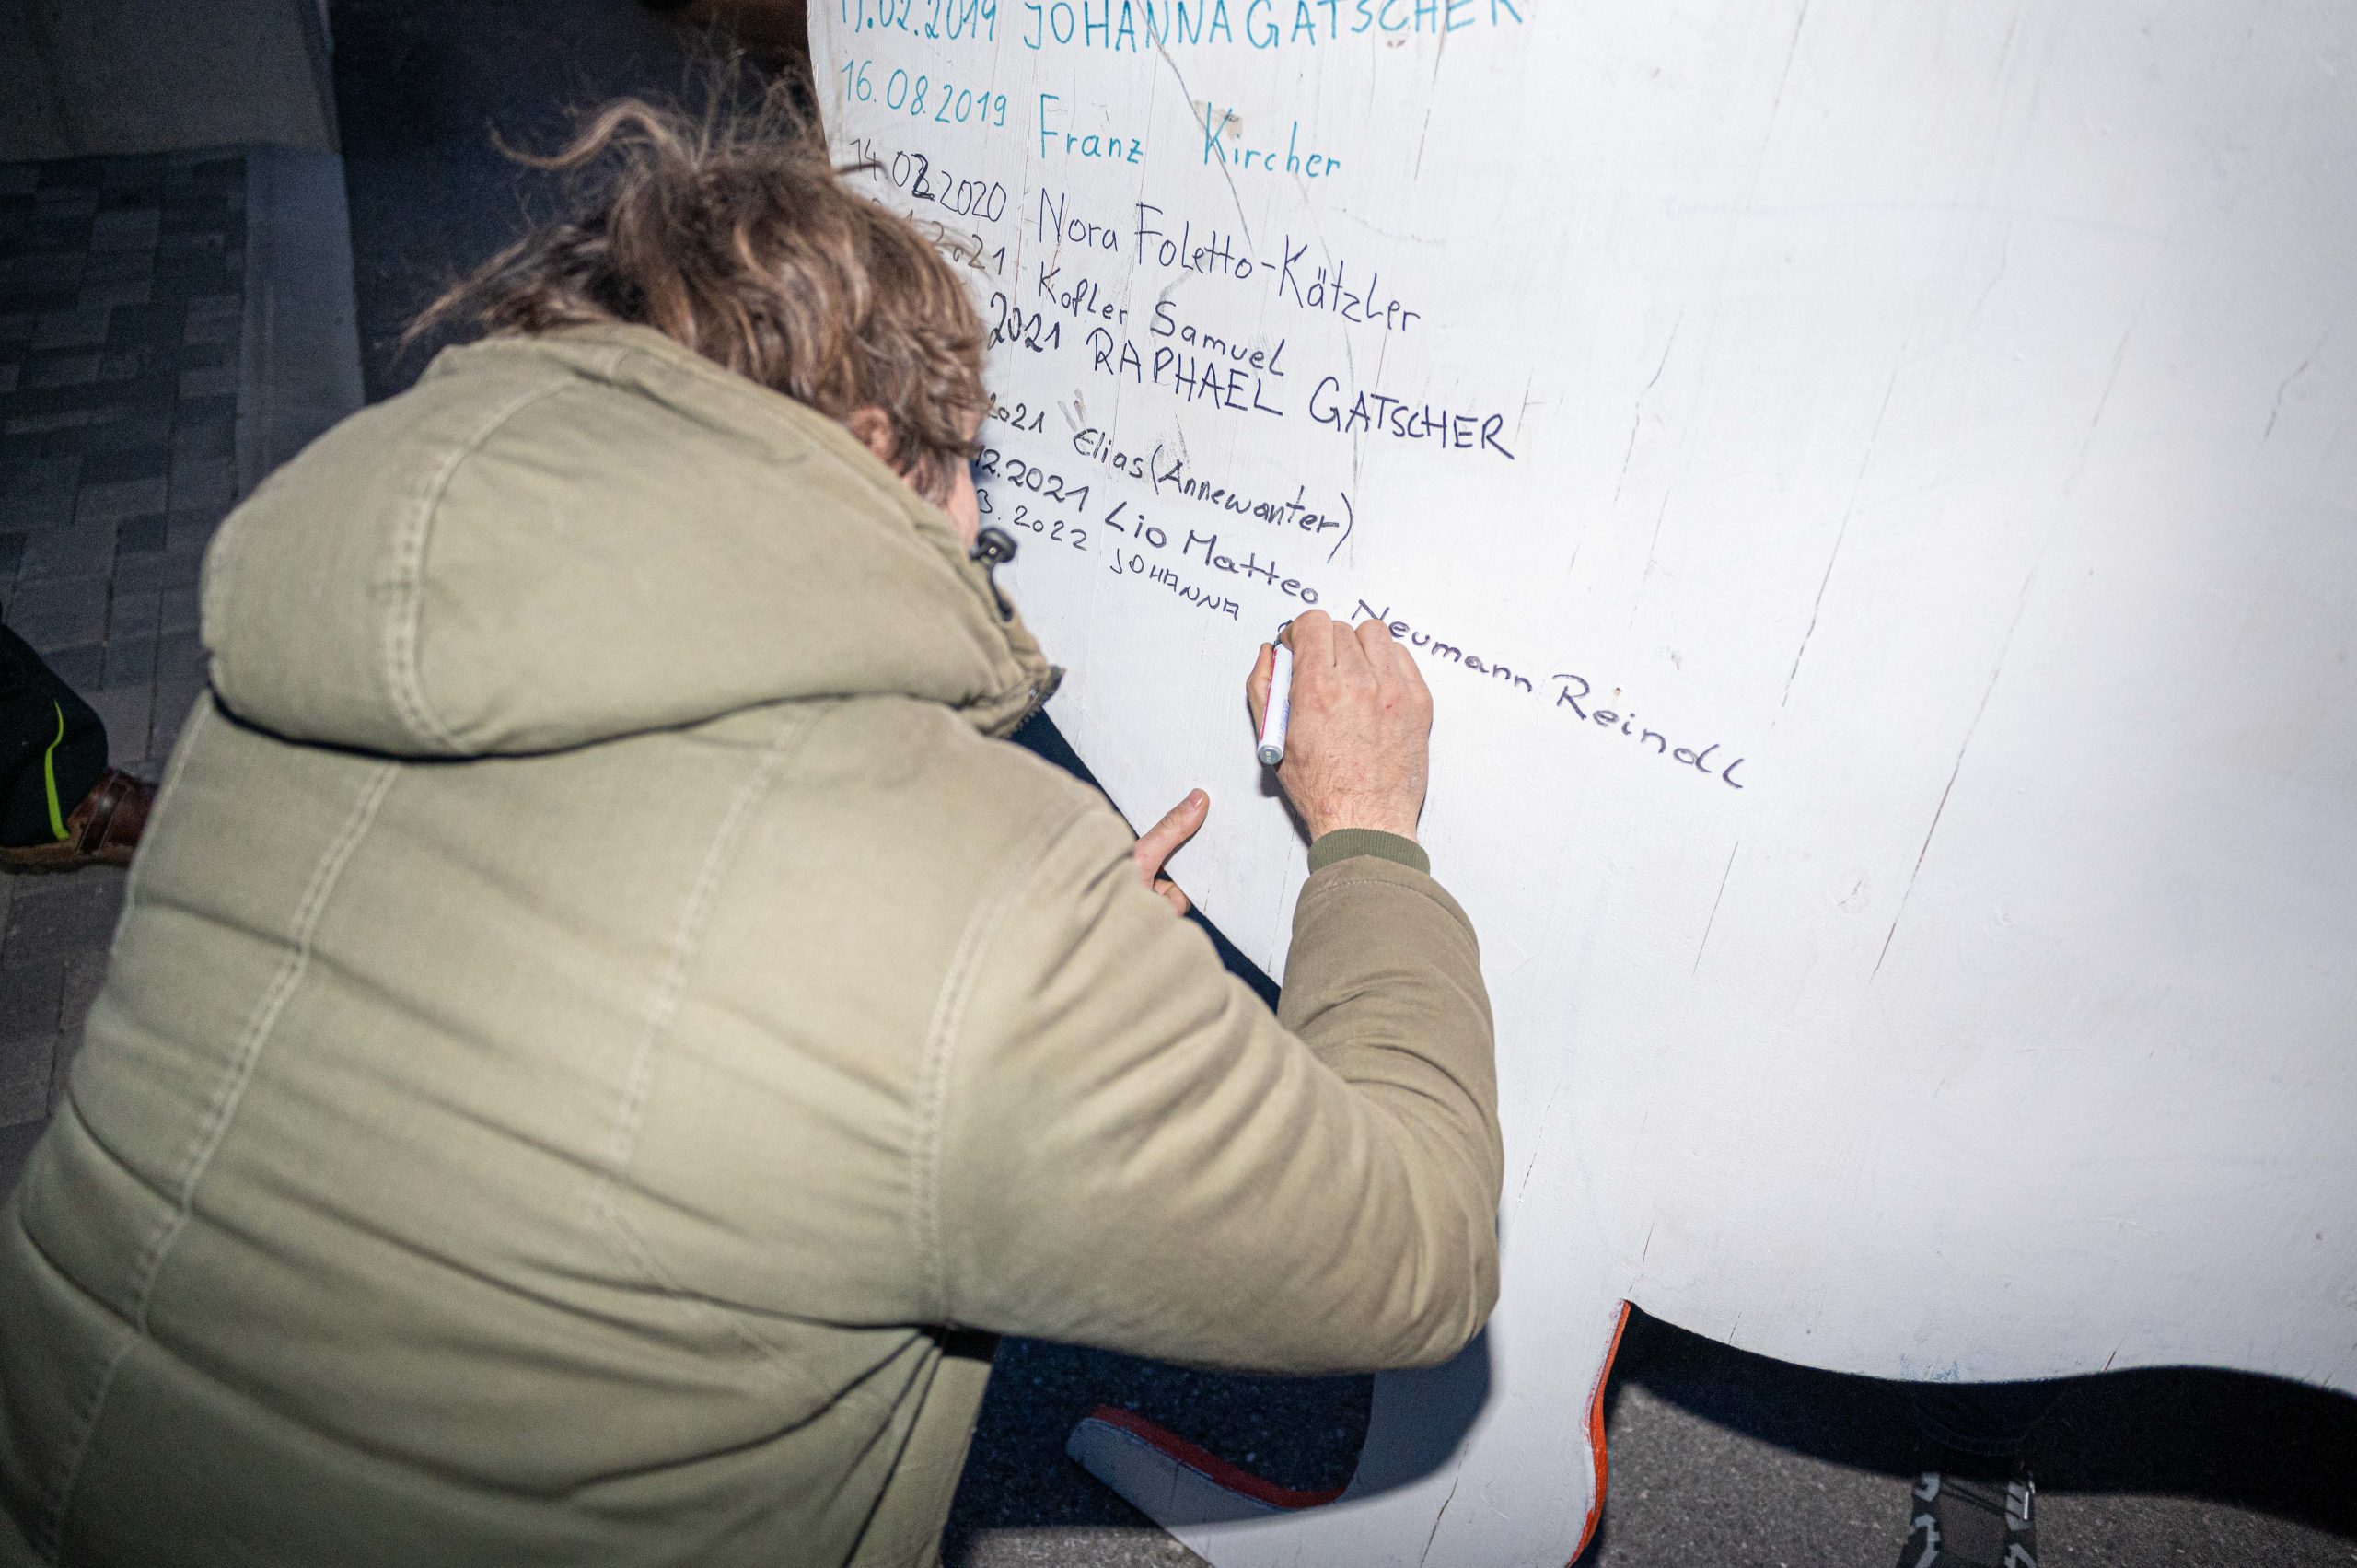 .02.2019 JOHANNA GATSCHER
16.08.2019 Franz Kircher
14.02.2020 Nora Foletto-Kätzler
2021 Kofler Samuel
2021 RAPHAEL GATSCHER
2021 Elias (Annewanter)
12.2021 Lio Matteo Neumann Reindl
3.2022 JOHANNA